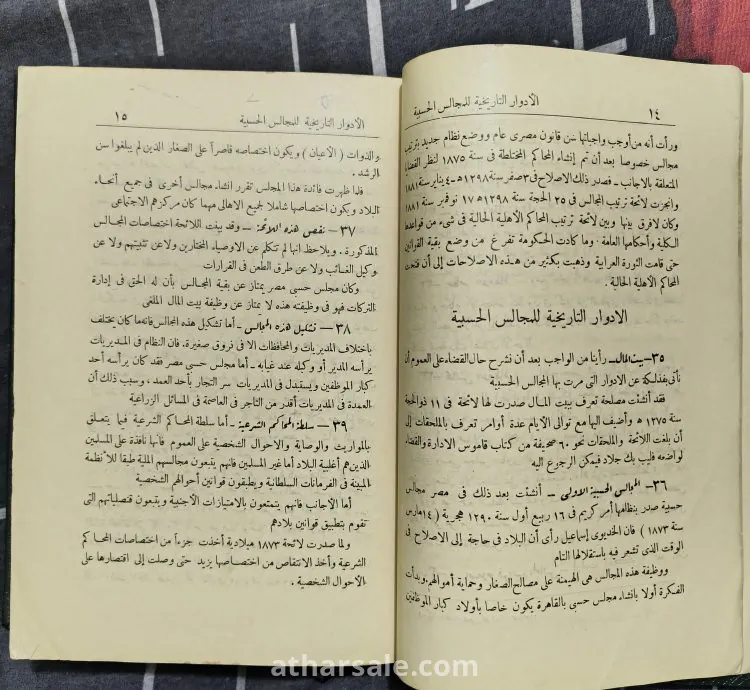 ١٤
الأدوار التاريخية للمجالس الحسبية
ورأت أنه من أوجب واجباتها سن قانون مصرى عام ووضع نظام جديد بترتيب
مجالس خصوصا بعد أن تم إنشاء المحاكم المختلطة فى سنة ١٨٧٥ لنظر القضايا
المتعلقة بالأجانب ـ فصدر ذلك الاصلاح فى ٣ صفر سنة ١٢٩٨ هـ ـ ٤ يناير سنة ١٨٨١
وانجزت لائحة ترتيب المجالس فى ٢٥ الحجة سنة ١٢٩٨ هـ ١٧ نوفمبر سنة ١٨٨١
وكان لافرق بينها وبين لائحة ترتيب المحاكم الأهلية الحالية فى شىء من قواعدها
الكلية وأحكامها العامة . وما كادت الحكومة تفرغ من وضع بقية القوانين
حتى قامت الثورة العرابية وذهبت بكثير من هذه الاصلاحات إلى أن فتحت
المحاكم الأهلية الحالية .
الأدوار التاريخية للمجالس الحسبية
٣٥ ـ بيت المال ـ رأينا من الواجب بعد أن نشرح حال القضاء على العموم أن
نأتى بفذلكة عن الادوار التى مرت بها المجالس الحسبية
فقد أنشئت مصلحة تعرف ببيت المال صدرت لها لائحة فى ١١ ذو الحجة
سنة ١٢٧٥ هـ وأضيف اليها مع توالى الأيام عدة أوامر تعرف بالملحقات إلى
أن بلغت اللائحة والملحقات نحو ٦٠ صحيفة من كتاب قاموس الادارة والقضاء
لواضعه فليب بك جلاد فيمكن الرجوع اليه
٣٦ ـ المجالس الحسبية الاولى ـ أنشئت بعد ذلك فى مصر مجالس
حسبية صدر بنظامها أمر كريم فى ١٦ ربيع أول سنة ١٢٩٠ هجرية ( ١٤ مارس
سنة ١٨٧٣ ) فان الخديوى إسماعيل رأى أن البلاد فى حاجة إلى الاصلاح فى
الوقت الذى تشعر فيه باستقلالها التام
ووظيفة هذه المجالس هى الهيمنة على مصالح الصغار وحماية أموالهم . وبدأت
الفكرة أولا بانشاء مجلس حسبى بالقاهرة يكون خاصا بأولاد كبار الموظفين
الأدوار التاريخية للمجالس الحسبية
١٥
والذوات ( الأعيان ) ويكون اختصاصه قاصراً على الصغار الذين لم يبلغوا سن
الرشد .
فلما ظهرت فائدة هذا المجلس تقرر انشاء مجالس أخرى فى جميع أنحاء
البلاد ويكون اختصاصها شاملا لجميع الاهالى مهما كان مركزهم الاجتماعى
٣٧ ـ نقص هذه اللائحة ـ وقد بينت اللائحة اختصاصات المجالس
المذكورة . ويلاحظ انها لم تتكلم عن الاوصياء المختارين ولا عن تثبيتهم ولا عن
وكيل الغائب ولا عن طرق الطعن فى القرارات
وكان مجلس حسبى مصر يمتاز عن بقية المجالس بأن له الحق فى إدارة
التركات فهو فى وظيفته هذه لا يمتاز عن وظيفة بيت المال الملغى
٣٨ ـ تشكيل هذه المجالس ـ أما تشكيل هذه المجالس فانه ما كان يختلف
باختلاف المديريات والمحافظات الا فى فروق صغيرة . فان النظام فى المديريات
يرأسه المدير أو وكيله عند غيابه ـ أما مجلس حسبى مصر فقد كان يرأسه أحد
كبار الموظفين ويستبدل فى المديريات سر التجار بأحد العمد ، وسبب ذلك أن
العمدة فى المديريات أقدر من التاجر فى العاصمة فى المسائل الزراعية
٣٩ ـ سلطة المحاكم الشرعية ـ أما سلطة المحاكم الشرعية فيما يتعلق
بالمواريث والوصاية والاحوال الشخصية على العموم فانها نافذة على المسلمين
الذين هم أغلبية البلاد أما غير المسلمين فانهم يتبعون مجالسهم الملية طبقا للأنظمة
المبينة فى الفرمانات السلطانية ويطبقون قوانين أحوالهم الشخصية
أما الأجانب فانهم يتمتعون بالامتيازات الأجنبية ويتبعون قنصلياتهم التى
تقوم بتطبيق قوانين بلادهم
ولما صدرت لائحة ١٨٧٣ ميلادية أخذت جزءاً من اختصاصات المحاكم
الشرعية وأخذ الانتقاص من اختصاصها يزيد حتى وصلت إلى اقتصارها على
الأحوال الشخصية .
atharsale.com